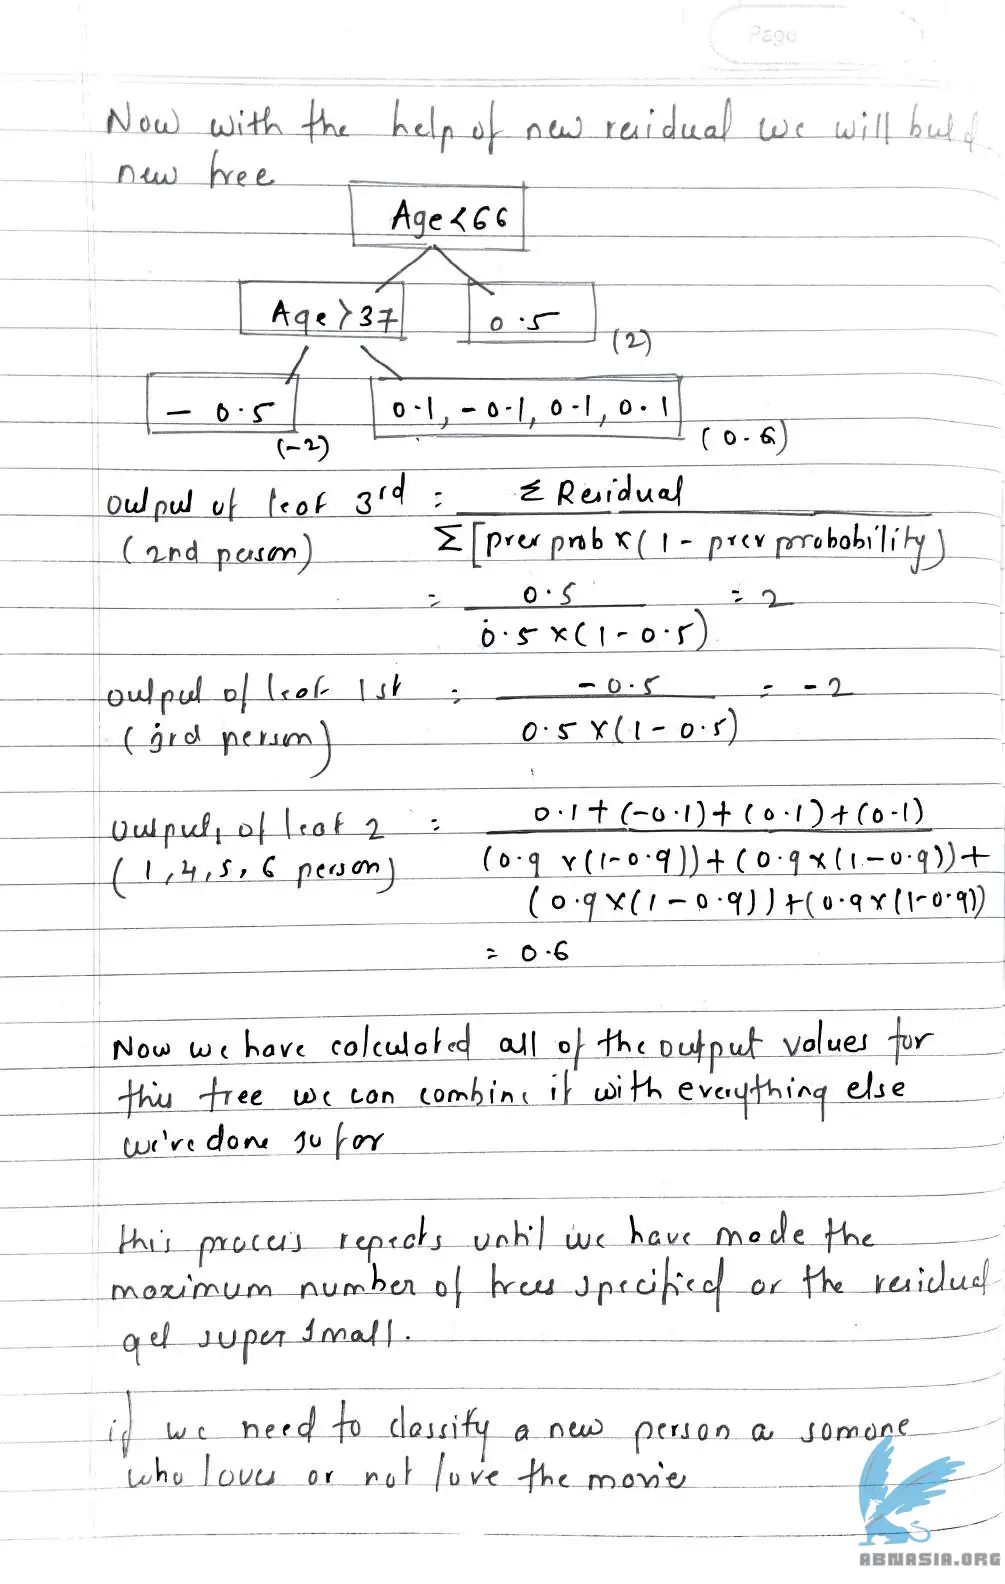 Page
Now with the help of new residual we will build
new tree
Age<66
Age>37
0.5
(2)
- 0.5
(-2)
0.1, -0.1, 0.1, 0.1
(0.6)
Output of leaf 3rd = Σ Residual
(2nd person) Σ[prev prob x (1 - prev probability)
= 0.5 = 2
0.5 x (1 - 0.5)
Output of leaf 1st = -0.5 = -2
(3rd person) 0.5 x (1 - 0.5)
Output, of leaf 2 = 0.1 + (-0.1) + (0.1) + (0.1)
(1, 4, 5, 6 person) (0.9 x (1-0.9)) + (0.9 x (1-0.9)) +
(0.9 x (1-0.9)) + (0.9 x (1-0.9))
= 0.6
Now we have calculated all of the output values for
this tree we can combine it with everything else
we've done so for
this process repeats until we have made the
maximum number of trees specified or the residual
get super small.
if we need to classify a new person a somone
who loves or not love the movie
ABNASIA.ORG